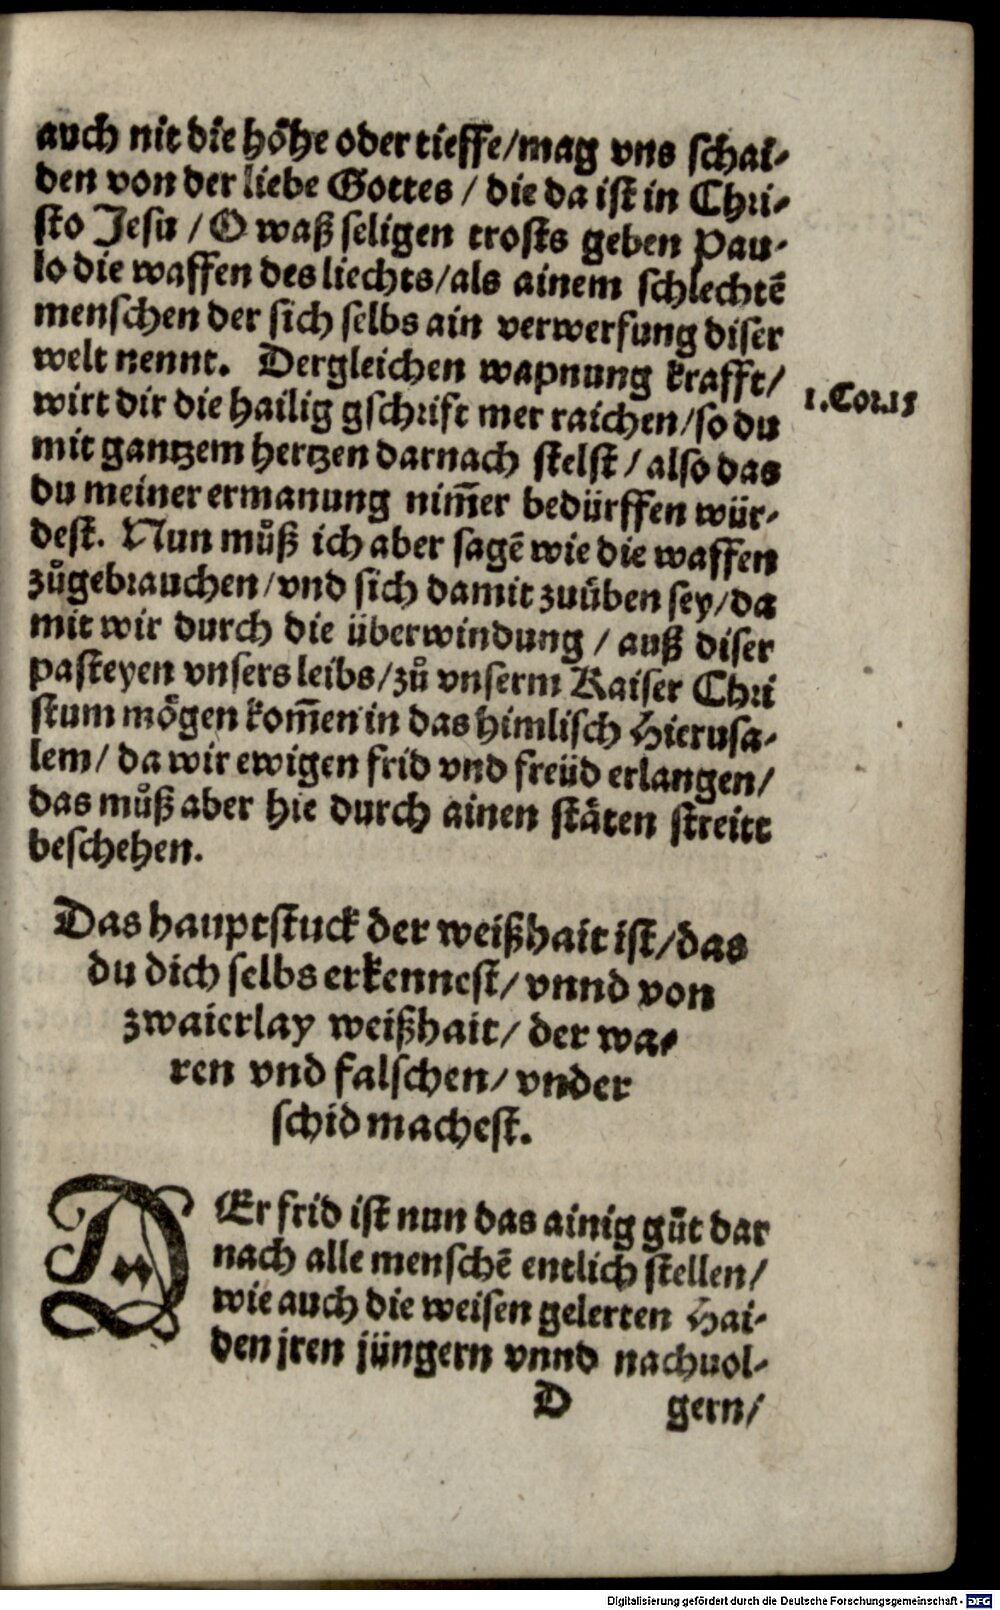 auch nit die höhe oder tieffe/mag vns schai-
den von der liebe Gottes / die da ist in Chri-
sto Jesu / O waß seligen trosts geben Pau-
lo die waffen des liechts/als ainem schlechtē
menschen der sich selbs ain verwerfung diser
welt nennt. Dergleichen wapnung krafft/
wirt dir die hailig gschrift mer raichen/so du
1.Cor.15
mit gantzem hertzen darnach stelst / also das
du meiner ermanung nim̄er bedürffen wür-
dest. Nun můß ich aber sagē wie die waffen
zůgebrauchen/vnd sich damit zuüben sey/da
mit wir durch die überwindung / auß diser
pasteyen vnsers leibs/zů vnserm Kaiser Chri
stum mögen kom̄en in das himlisch Hierusa-
lem/ da wir ewigen frid vnd freüd erlangen/
das můß aber hie durch ainen stäten streitt
beschehen.
Das hauptstuck der weißhait ist/das
du dich selbs erkennest/ vnnd von
zwaierlay weißhait/ der wa-
ren vnd falschen/ vnder
schid machest.
DEr frid ist nun das ainig gůt dar
nach alle menschē entlich stellen/
wie auch die weisen gelerten Hai-
den jren jüngern vnnd nachuol-
D gern/
Digitalisierung gefördert durch die Deutsche Forschungsgemeinschaft - DFG